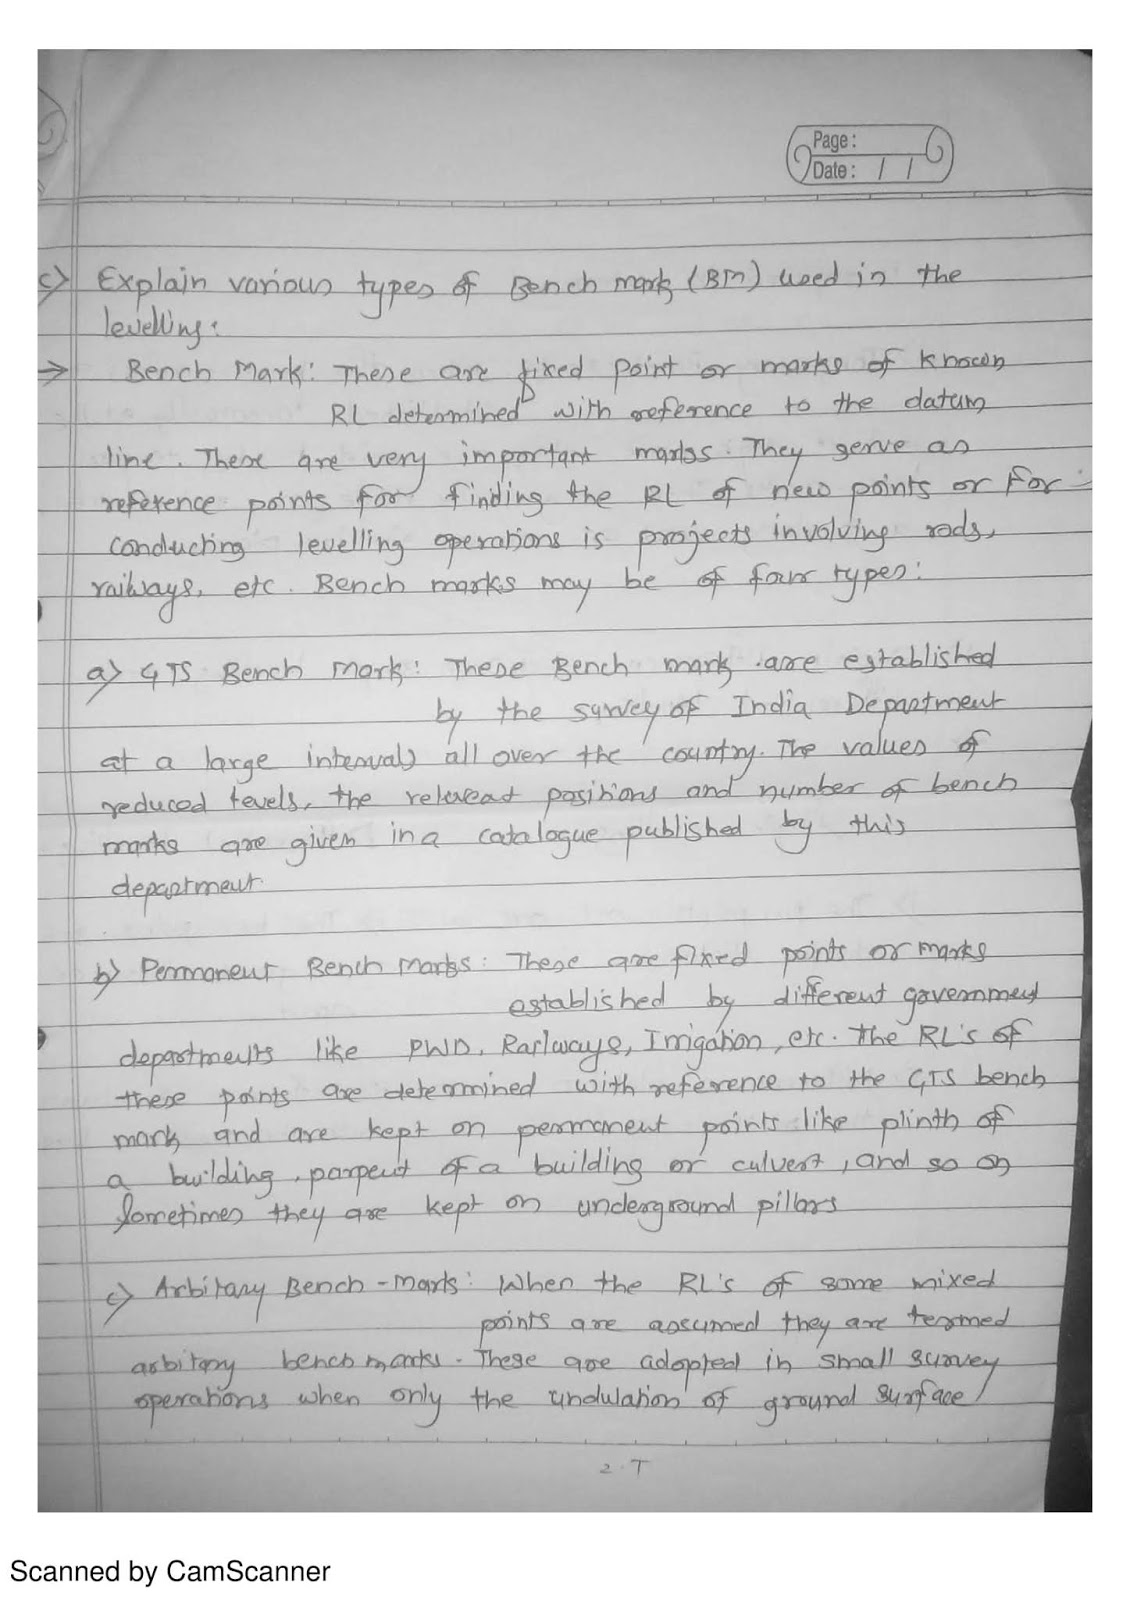 Page :
Date : / /
c) Explain various types of Bench mark (BM) used in the
levelling:
→ Bench Mark: These are fixed point or marks of known
RL determined with reference to the datum
line. These are very important marks. They serve as
reference points for finding the RL of new points or for
conducting levelling operations is projects involving rods,
railways, etc. Bench marks may be of four types:
a) GTS Bench Mark: These Bench mark are established
by the survey of India Department
at a large intervals all over the country. The values of
reduced levels, the releveat positions and number of bench
marks are given in a catalogue published by this
department.
b) Permanent Bench Marks: These are fixed points or marks
established by different government
departments like PWD, Railways, Irrigation, etc. The RL's of
these points are determined with reference to the GTS bench
mark and are kept on permanent points like plinth of
a building, parpeut of a building or culvert, and so on
Sometimes they are kept on underground pillars
c) Arbitary Bench-marks: When the RL's of some mixed
points are assumed they are termed
arbitary bench marks. These are adopted in small survey
operations when only the undulation of ground surface
T
Scanned by CamScanner